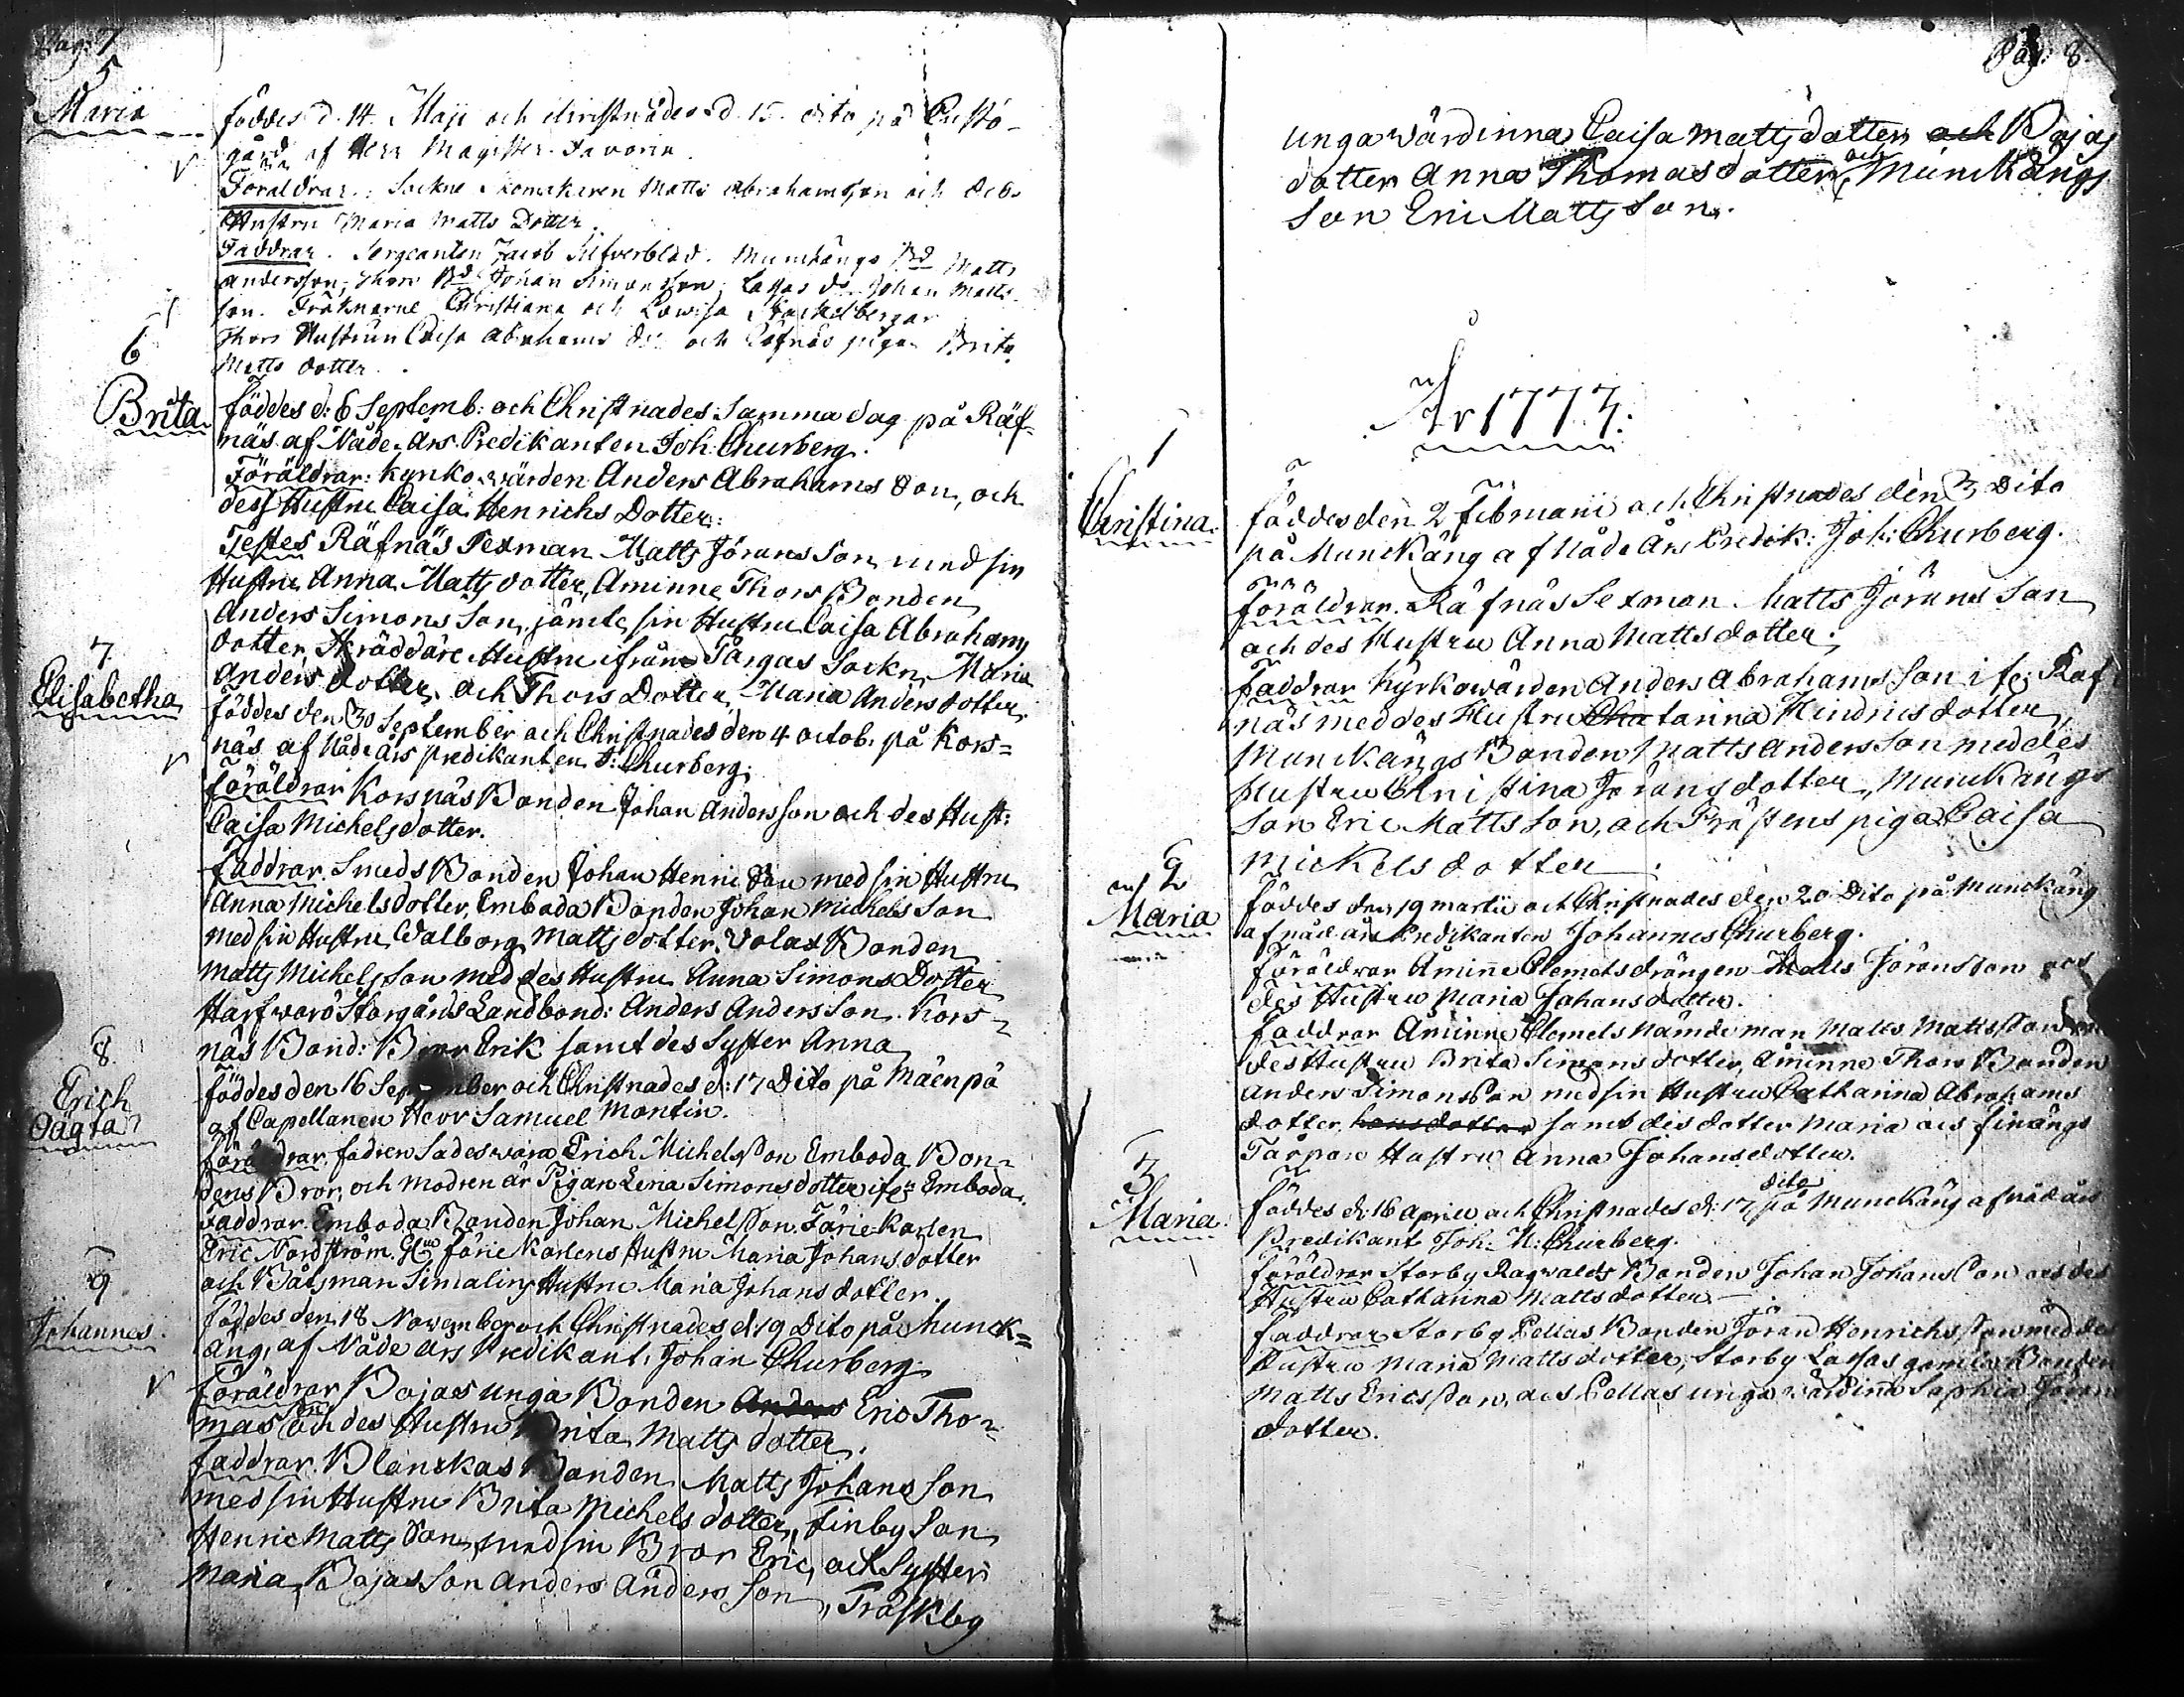 Pag: 7
5
Maria
föddes d. 14. Maji och christnades d. 15. dito på Prästo-
gård af Herr Magister
Föräldrar: Sockne Skomakaren Matts Abrahamsson och des
Hustru Maria Matts Dotter.
Faddrar. Sergeanten Jacob Silfverblad. Munckängs Bd Matts
Andersson, Thors Bd Johan Simonsson, Lassas do Johan Matts
son. Fröknarne Christiana och Lowisa Stackelbergar
Thors Hustrun Caisa Abrahams do och Räfnäs pigan Brita
Matts dotter.
6
Brita
föddes d: 6 Septemb: och Christnades Samma dag på Räf-
näs af Nåde-års Predikanten Joh: Churberg.
Föräldrar: Kyrkowärden Anders Abrahams Son, och
dess Hustru Caisa Henrichs Dotter:
Testes Räfnäs Sexman Matts Jörans Son med sin
Hustru Anna Matts dotter, Åminne Thors Bonden
Anders Simons Son, jämte sin Hustru Caisa Abrahams
dotter, Skräddare Hustru ifrån Pargas Sockn Maria
Anders dotter, och Thors Dotter Maria Anders dotter
7.
Elisabetha
föddes den 30 September och Christnades den 4 octob. på Kors=
näs af Nåde års predikanten J: Churberg.
föräldrar Korsnäs Bonden Johan Andersson och des Hust:
Caisa Michelsdotter.
faddrar Smeds Bonden Johan Henric Son med sin Hustru
Anna Michelsdotter, Emboda Bonden Johan Michels Son
med sin Hustru Walborg Matts dotter. Wolax Bonden
Matts Michels Son med des Hustru Anna Simons Dotter
Harfwarö Storgårds Landbond: Anders Anders Son. Kors-
näs Bond: Bror Erik samt des Syster Anna
8
Erich
Oägta
föddes den 16 September och Christnades d: 17 Dito på Mäenpä
af Capellanen Herr Samuel Montin.
föräldrar. fadren Sades wara Erich Michels Son Emboda Bon-
dens Bror, och modren är Pigan Lena Simons dotter ifr: Emboda.
faddrar Emboda Bonden Johan Michels Son. Färie Karlen
Eric Nordström. Färie Karlens Hustru Maria Johans dotter
och Båtsman Simalins Hustru Maria Johans dotter.
9
Johannes.
föddes den 18 November och Christnades d: 19 Dito på Munck=
äng, af Nåde års Predikant, Johan Churberg
föräldrar Bojas unga Bonden Anders Eric Tho-
mas Son och des Hustru Brita Matts dotter.
faddrar. Blanskas Bonden Matts Johans Son
med sin Hustru Brita Michels dotter, Finby Son
Henric Matts Son, med sin Bror Eric, och Syster
Maria, Bojas Son Anders Anders Son, Träskby
Pag: 8.
unga wärdinna Caisa Matts dotter och Bojas
dotter Anna Thomas dotter, och Munckängs
Son Eric Matts Son.
År 1777.
1
Christina.
föddes den 2 Februarii och Christnades den 3 Dito
på Munckäng af Nåde Års Predik: Joh: Churberg.
föräldrar. Räfnäs Sexman Matts Jörans Son
och des Hustru Anna Matts dotter.
Faddrar Kyrkowärden Anders Abrahams Son ifr: Räf
näs med des Hustru Chatarina Hindrics dotter
Munckängs Bonden Matts Anders Son med des
Hustru Christina Jörans dotter, Munckängs
Son Eric Matts Son, och Prästens piga Caisa
Mickels dotter.
2
Maria
föddes den 19 martii och Christnades den 20 Dito på Munckäng
af nåd års Predikanten Johannes Churberg.
föräldrar Åminne Clemets drängen Matts Jörans Son och
des Hustru Maria Johans dotter.
faddrar Åminne Clemets Nämdeman Matts Matts Son
des Hustru Brita Simons dotter, Åminne Thors Bonden
Anders Simons Son med sin Hustru Catharina Abrahams
dotter, hans dotter samt des dotter Maria och finängs
Tårpare Hustru Anna Johans dotter.
3
Maria.
föddes d: 16 Aprill och Christnades d: 17 dito på Munckäng af nåd års
Predikant Joh: N: Churberg.
föräldrar Storby Ragwalds Bonden Johan Johans Son och des
Hustru Catharina Matts dotter.
faddrar Storby Pellas Bonden Jöran Henrichs Son med des
Hustru Maria Matts dotter, Storby Lassas gamla Bonden
Matts Erics Son, och Pellas unga wärdinna Sophia Jörans
dotter.